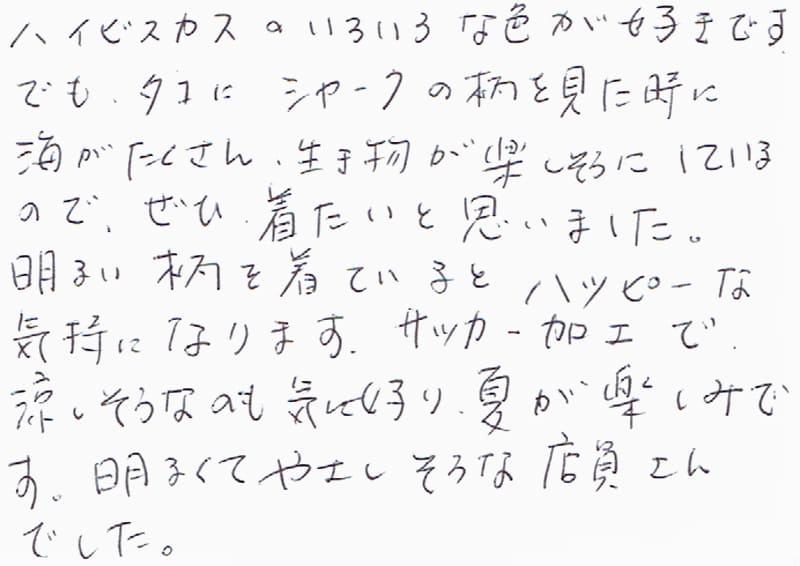 ハイビスカスのいろいろな色が好きです
でも、タコに シャークの柄を見た時に
海がたくさん、生き物が楽しそうにしている
ので、ぜひ、着たいと思いました。
明るい柄を着ているとハッピーな
気持になります。サッカー加工で、
涼しそうなのも気に好り、夏が楽しみで
す。明るくてやさしそうな店員さん
でした。